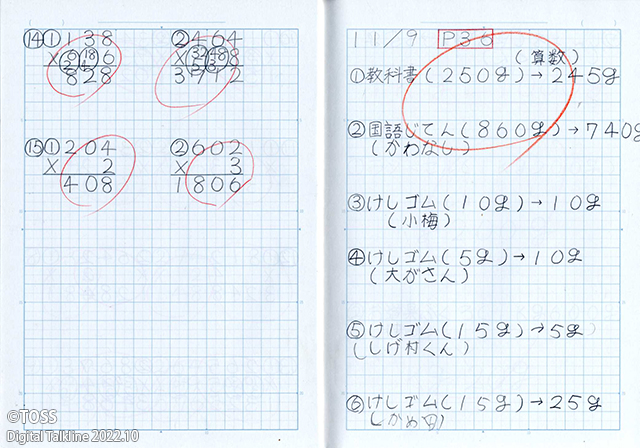 ⑭①138
×6
828
②464
×8
3712
⑮①204
×2
408
②602
×3
1806
11/9 P36
(算数)
①教科書(250g)→245g
②国語じてん(860g)→740g
(かわなし)
③けしゴム(10g)→10g
(小梅)
④けしゴム(5g)→10g
(大がさん)
⑤けしゴム(15g)→5g
(しげ村くん)
⑥けしゴム(15g)→25g
©TOSS
Digital Talkline 2022.10